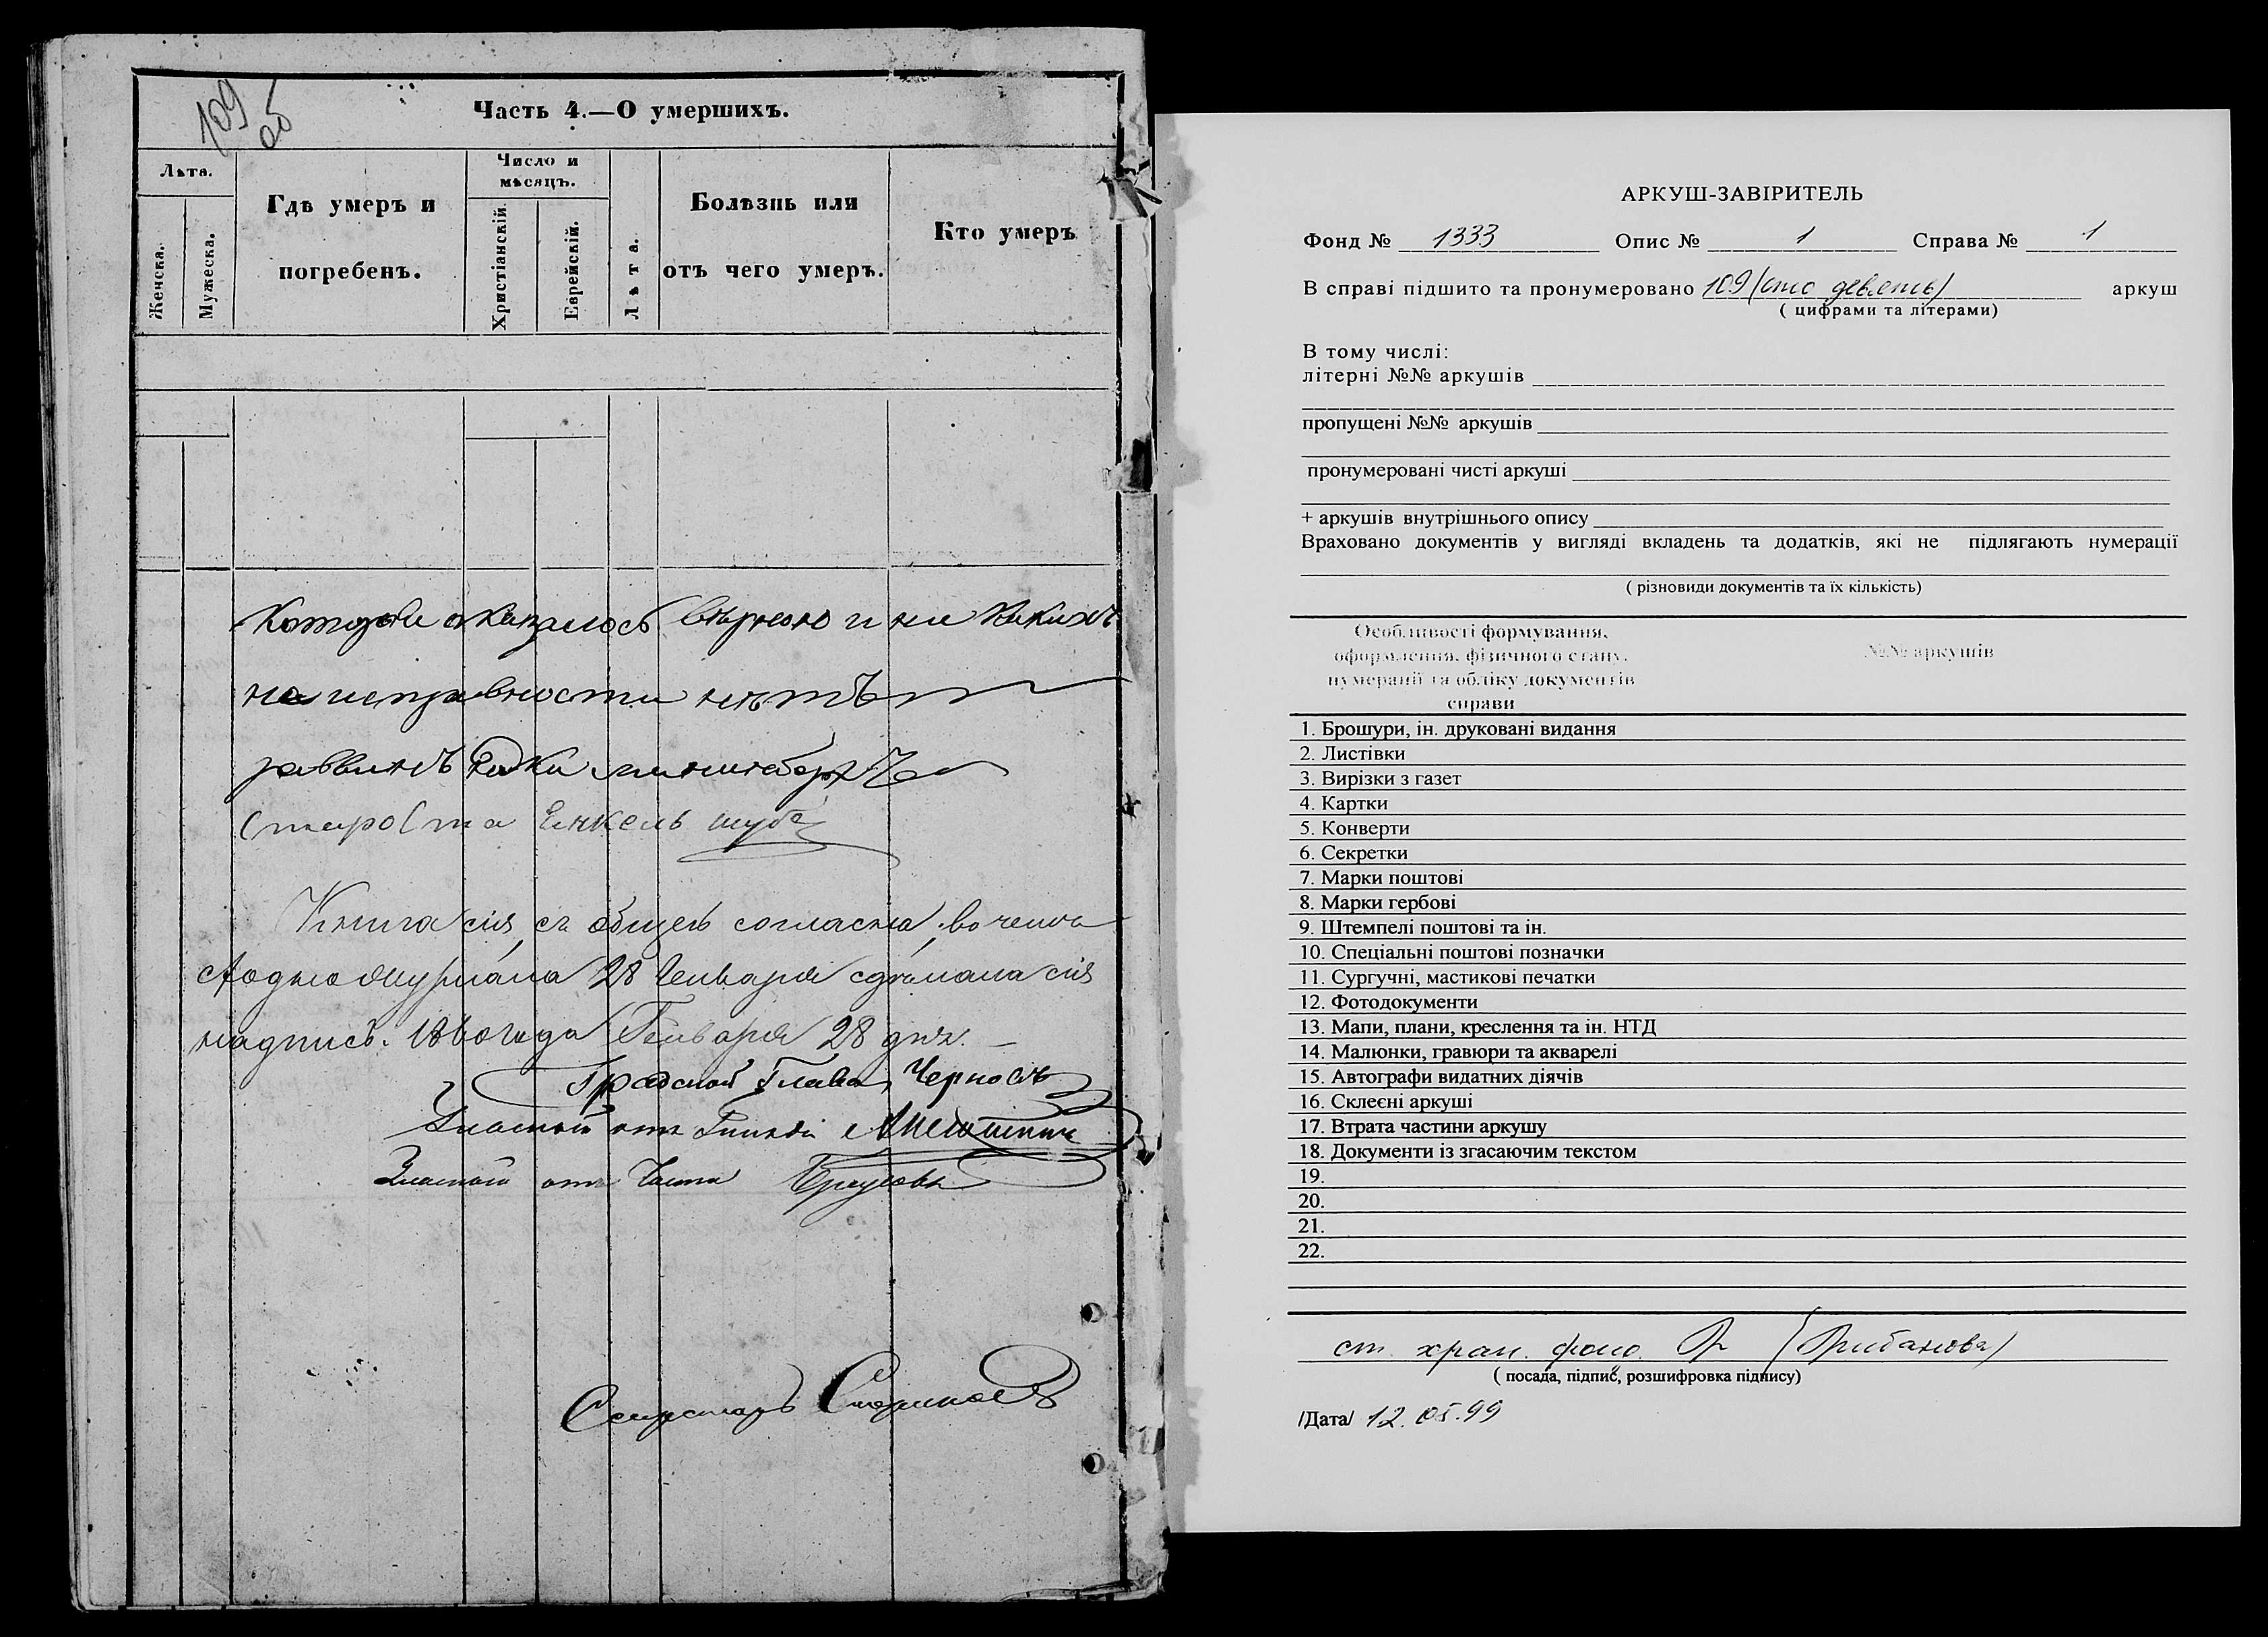 109
об
Часть 4.—О умершихъ.
Лѣта.
Женска.
Мужеска.
Гдѣ умеръ и
погребенъ.
Число и
мѣсяцъ.
Христіанскій.
Еврейскій.
Лѣта.
Болѣзнь или
отъ чего умеръ.
Кто умеръ
оказалось вѣрною и ни какихъ
неисправности нѣтъ
раввинъ
Староста Енкель шуба
Книга сія съ общею согласна, во чемъ
28 Генваря сдѣлана сія
надпись. года Генваря 28 дня.
Градской Глава
Гласный отъ
Гласный отъ
Секретарь
АРКУШ-ЗАВІРИТЕЛЬ
Фонд № 1333 Опис № 1 Справа № 1
В справі підшито та пронумеровано 109 (сто девять) аркуш
( цифрами та літерами)
В тому числі:
літерні №№ аркушів
пропущені №№ аркушів
пронумеровані чисті аркуші
+ аркушів внутрішнього опису
Враховано документів у вигляді вкладень та додатків, які не підлягають нумерації
( різновиди документів та їх кількість)
Особливості формування,
оформлення, фізичного стану,
нумерації та обліку документів
справи
№№ аркушів
1. Брошури, ін. друковані видання
2. Листівки
3. Вирізки з газет
4. Картки
5. Конверти
6. Секретки
7. Марки поштові
8. Марки гербові
9. Штемпелі поштові та ін.
10. Спеціальні поштові позначки
11. Сургучні, мастикові печатки
12. Фотодокументи
13. Мапи, плани, креслення та ін. НТД
14. Малюнки, гравюри та акварелі
15. Автографи видатних діячів
16. Склеєні аркуші
17. Втрата частини аркушу
18. Документи із згасаючим текстом
19.
20.
21.
22.
ст. хран. фонд.
( посада, підпис, розшифровка підпису)
/Дата/ 12.05.99